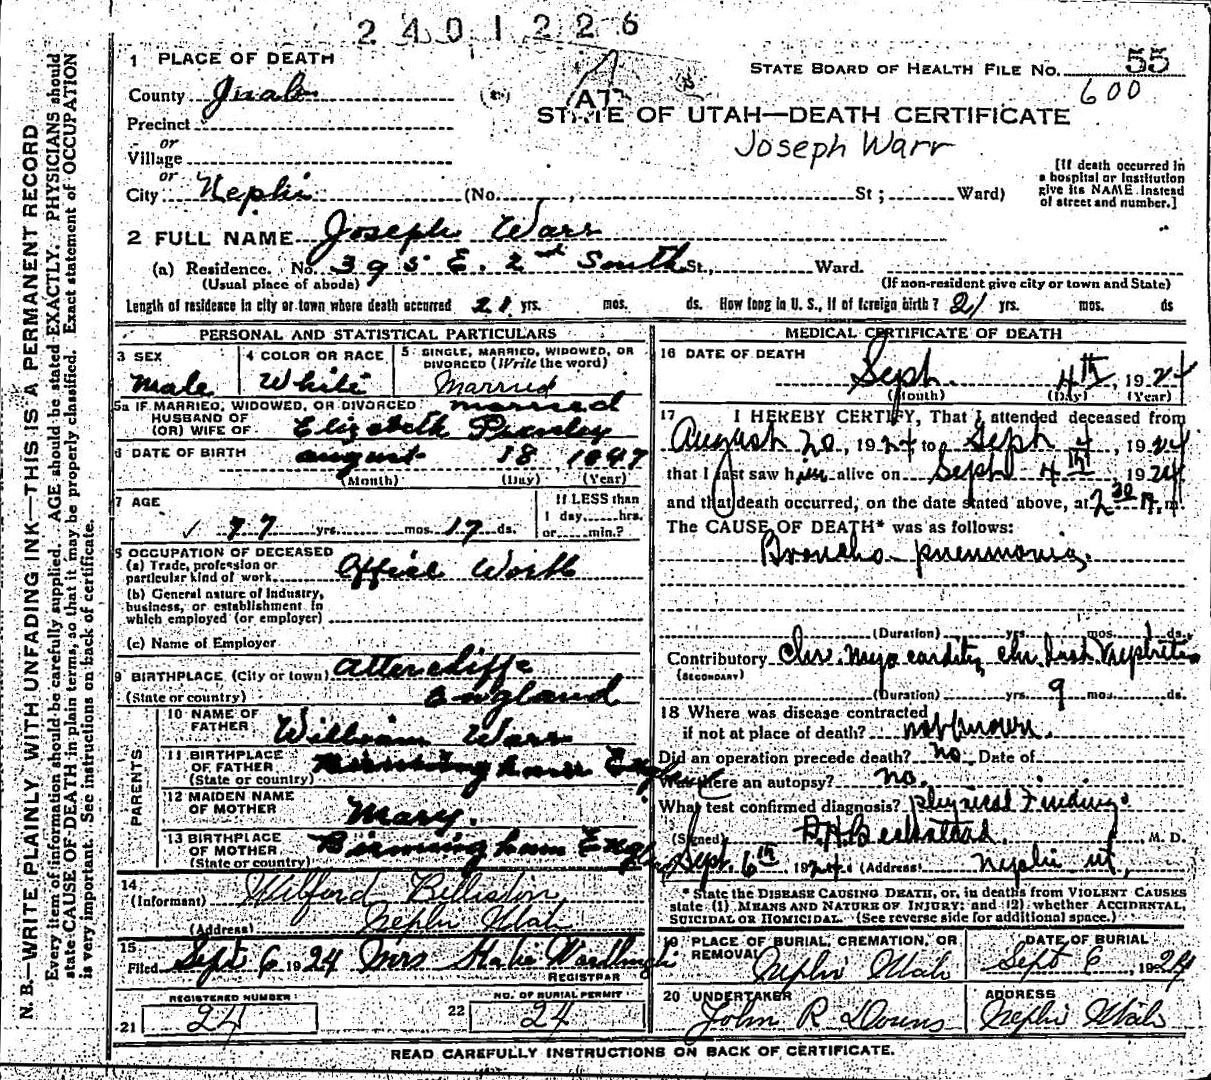 2401226
1 PLACE OF DEATH
STATE BOARD OF HEALTH FILE NO. 55
600
County Juab
STATE OF UTAH—DEATH CERTIFICATE
Precinct
Joseph Warr
or
Village
or
City Nephi (No. , St ; Ward)
[If death occurred in
a hospital or institution
give its NAME instead
of street and number.]
2 FULL NAME Joseph Warr
(a) Residence. No. 395 E. 2nd South St., Ward.
(Usual place of abode) (If non-resident give city or town and State)
Length of residence in city or town where death occurred 21 yrs. mos. ds. How long in U. S., if of foreign birth? 21 yrs. mos. ds
PERSONAL AND STATISTICAL PARTICULARS
3 SEX
Male
4 COLOR OR RACE
White
5 SINGLE, MARRIED, WIDOWED, OR
DIVORCED (Write the word)
Married
5a IF MARRIED, WIDOWED, OR DIVORCED married
HUSBAND OF
(OR) WIFE OF Elizabeth
6 DATE OF BIRTH August 18 1847
(Month) (Day) (Year)
7 AGE
77 yrs. mos. 17 ds.
If LESS than
1 day, hrs.
or min.?
8 OCCUPATION OF DECEASED
(a) Trade, profession or
particular kind of work Office Work
(b) General nature of Industry,
business, or establishment in
which employed (or employer)
(c) Name of Employer
9 BIRTHPLACE (City or town) Attercliffe
(State or country) England
PARENTS
10 NAME OF
FATHER William Warr
11 BIRTHPLACE
OF FATHER Birmingham England
(State or country)
12 MAIDEN NAME
OF MOTHER Mary.
13 BIRTHPLACE
OF MOTHER Birmingham England
(State or country)
14
(Informant) Wilford Belliston
(Address) Nephi Utah
15
Filed Sept 6 1924 Mrs
REGISTRAR
REGISTERED NUMBER
21 24
NO. OF BURIAL PERMIT
22 24
MEDICAL CERTIFICATE OF DEATH
16 DATE OF DEATH
Sept. 4th, 1924
(Month) (Day) (Year)
17 I HEREBY CERTIFY, That I attended deceased from
August 20, 1924 to Sept 4, 1924
that I last saw him alive on Sept 4th 1924
and that death occurred, on the date stated above, at 2 30 A. m.
The CAUSE OF DEATH* was as follows:
Broncho-pneumonia.
(Duration) yrs. mos. ds.
Contributory Chr. Myocarditis, chr. Inst. Nephritis
(SECONDARY)
(Duration) yrs. 9 mos. ds.
18 Where was disease contracted
if not at place of death? not known.
Did an operation precede death? no Date of
Was there an autopsy? no.
What test confirmed diagnosis? physical Findings
(Signed) P.H. Beckstead, M. D.
Sept. 6th 1924 (Address) Nephi ut,
* State the DISEASE CAUSING DEATH, or, in deaths from VIOLENT CAUSES
state (1) MEANS AND NATURE OF INJURY; and (2) whether ACCIDENTAL,
SUICIDAL OR HOMICIDAL. (See reverse side for additional space.)
19 PLACE OF BURIAL, CREMATION, OR
REMOVAL Nephi Utah
DATE OF BURIAL
Sept 6, 1924
20 UNDERTAKER
John R Downs
ADDRESS
Nephi Utah
READ CAREFULLY INSTRUCTIONS ON BACK OF CERTIFICATE.
N. B.—WRITE PLAINLY WITH UNFADING INK—THIS IS A PERMANENT RECORD
Every item of information should be carefully supplied. AGE should be stated EXACTLY. PHYSICIANS should
state CAUSE OF DEATH in plain terms, so that it may be properly classified. Exact statement of OCCUPATION
is very important. See instructions on back of certificate.